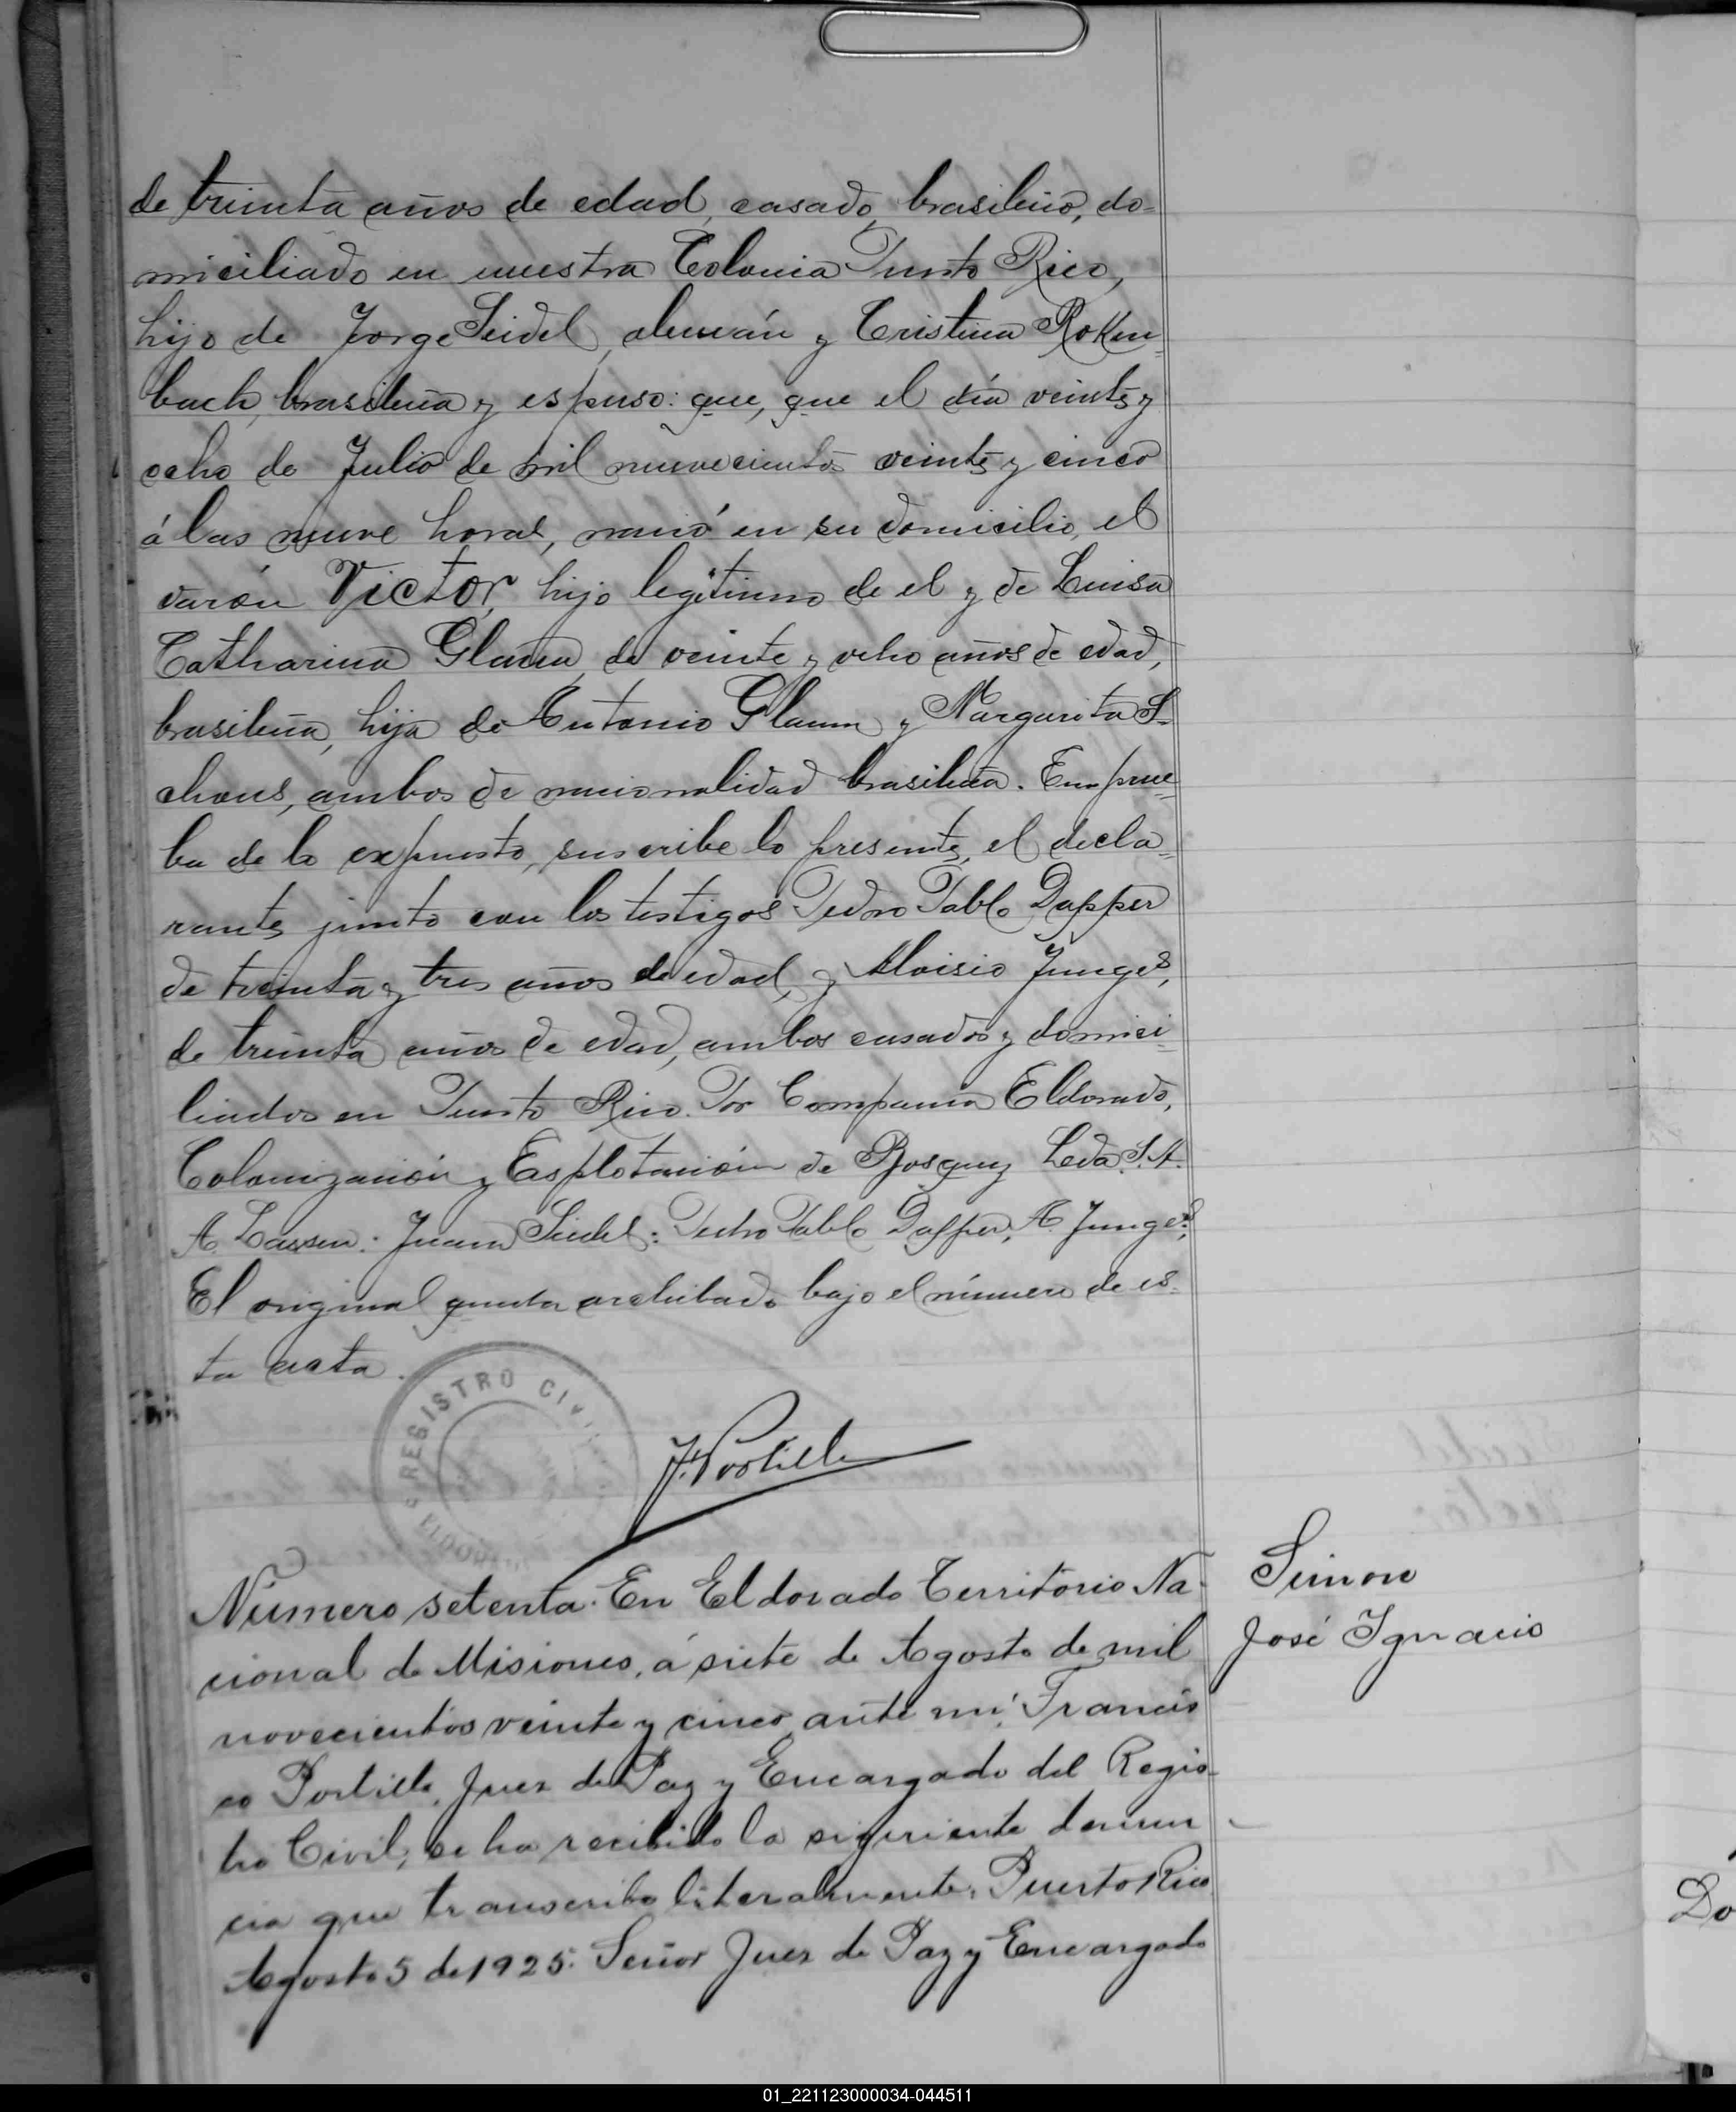 de treinta años de edad, casado, brasileño, do-
miciliado en nuestra Colonia Puerto Rico,
hijo de Jorge Seidel, alemán y Cristina Rokem-
bach, brasileña y espuso: que, que el día veinte y
ocho de Julio de mil nuevecientos veinte y cinco
á las nueve horas, nació en su domicilio, el
varón Victor, hijo legítimo de el y de Luisa
Catharina Glaum, de veinte y ocho años de edad,
brasileña, hija de Antonio Glaum y Margarita S-
chaus, ambos de nacionalidad brasileña. En prue
ba de lo expuesto, suscribe lo presente, el decla-
rante, junto con los testigos Pedro Pablo Dapper
de treinta y tres años de edad, y Aloisio Junges,
de treinta años de edad, ambos casados y domici-
liados en Puerto Rico. Por Compania Eldorado,
Colonización y Esplotación de Bosques Leda. S.A.
A. Lassen: Juan Seidel: Pedro Pablo Dapper, A. Junges:
El original queda archibado bajo el número de es-
ta acta.
REGISTRO CIVIL
ELDORADO
F. Portillo
Número setenta. En Eldorado Territorio Na-
cional de Misiones, á siete de Agosto de mil
novecientos veinte y cinco, ante mi, Francis
co Portillo, Juez de Paz y Encargado del Regis-
tro Civil, se ha recibido la siguiente denun
cia que transcribo literalmente: Puerto Rico
Agosto 5 de 1925: Señor Juez de Paz y Encargado
Simon
José Ignacio
Do